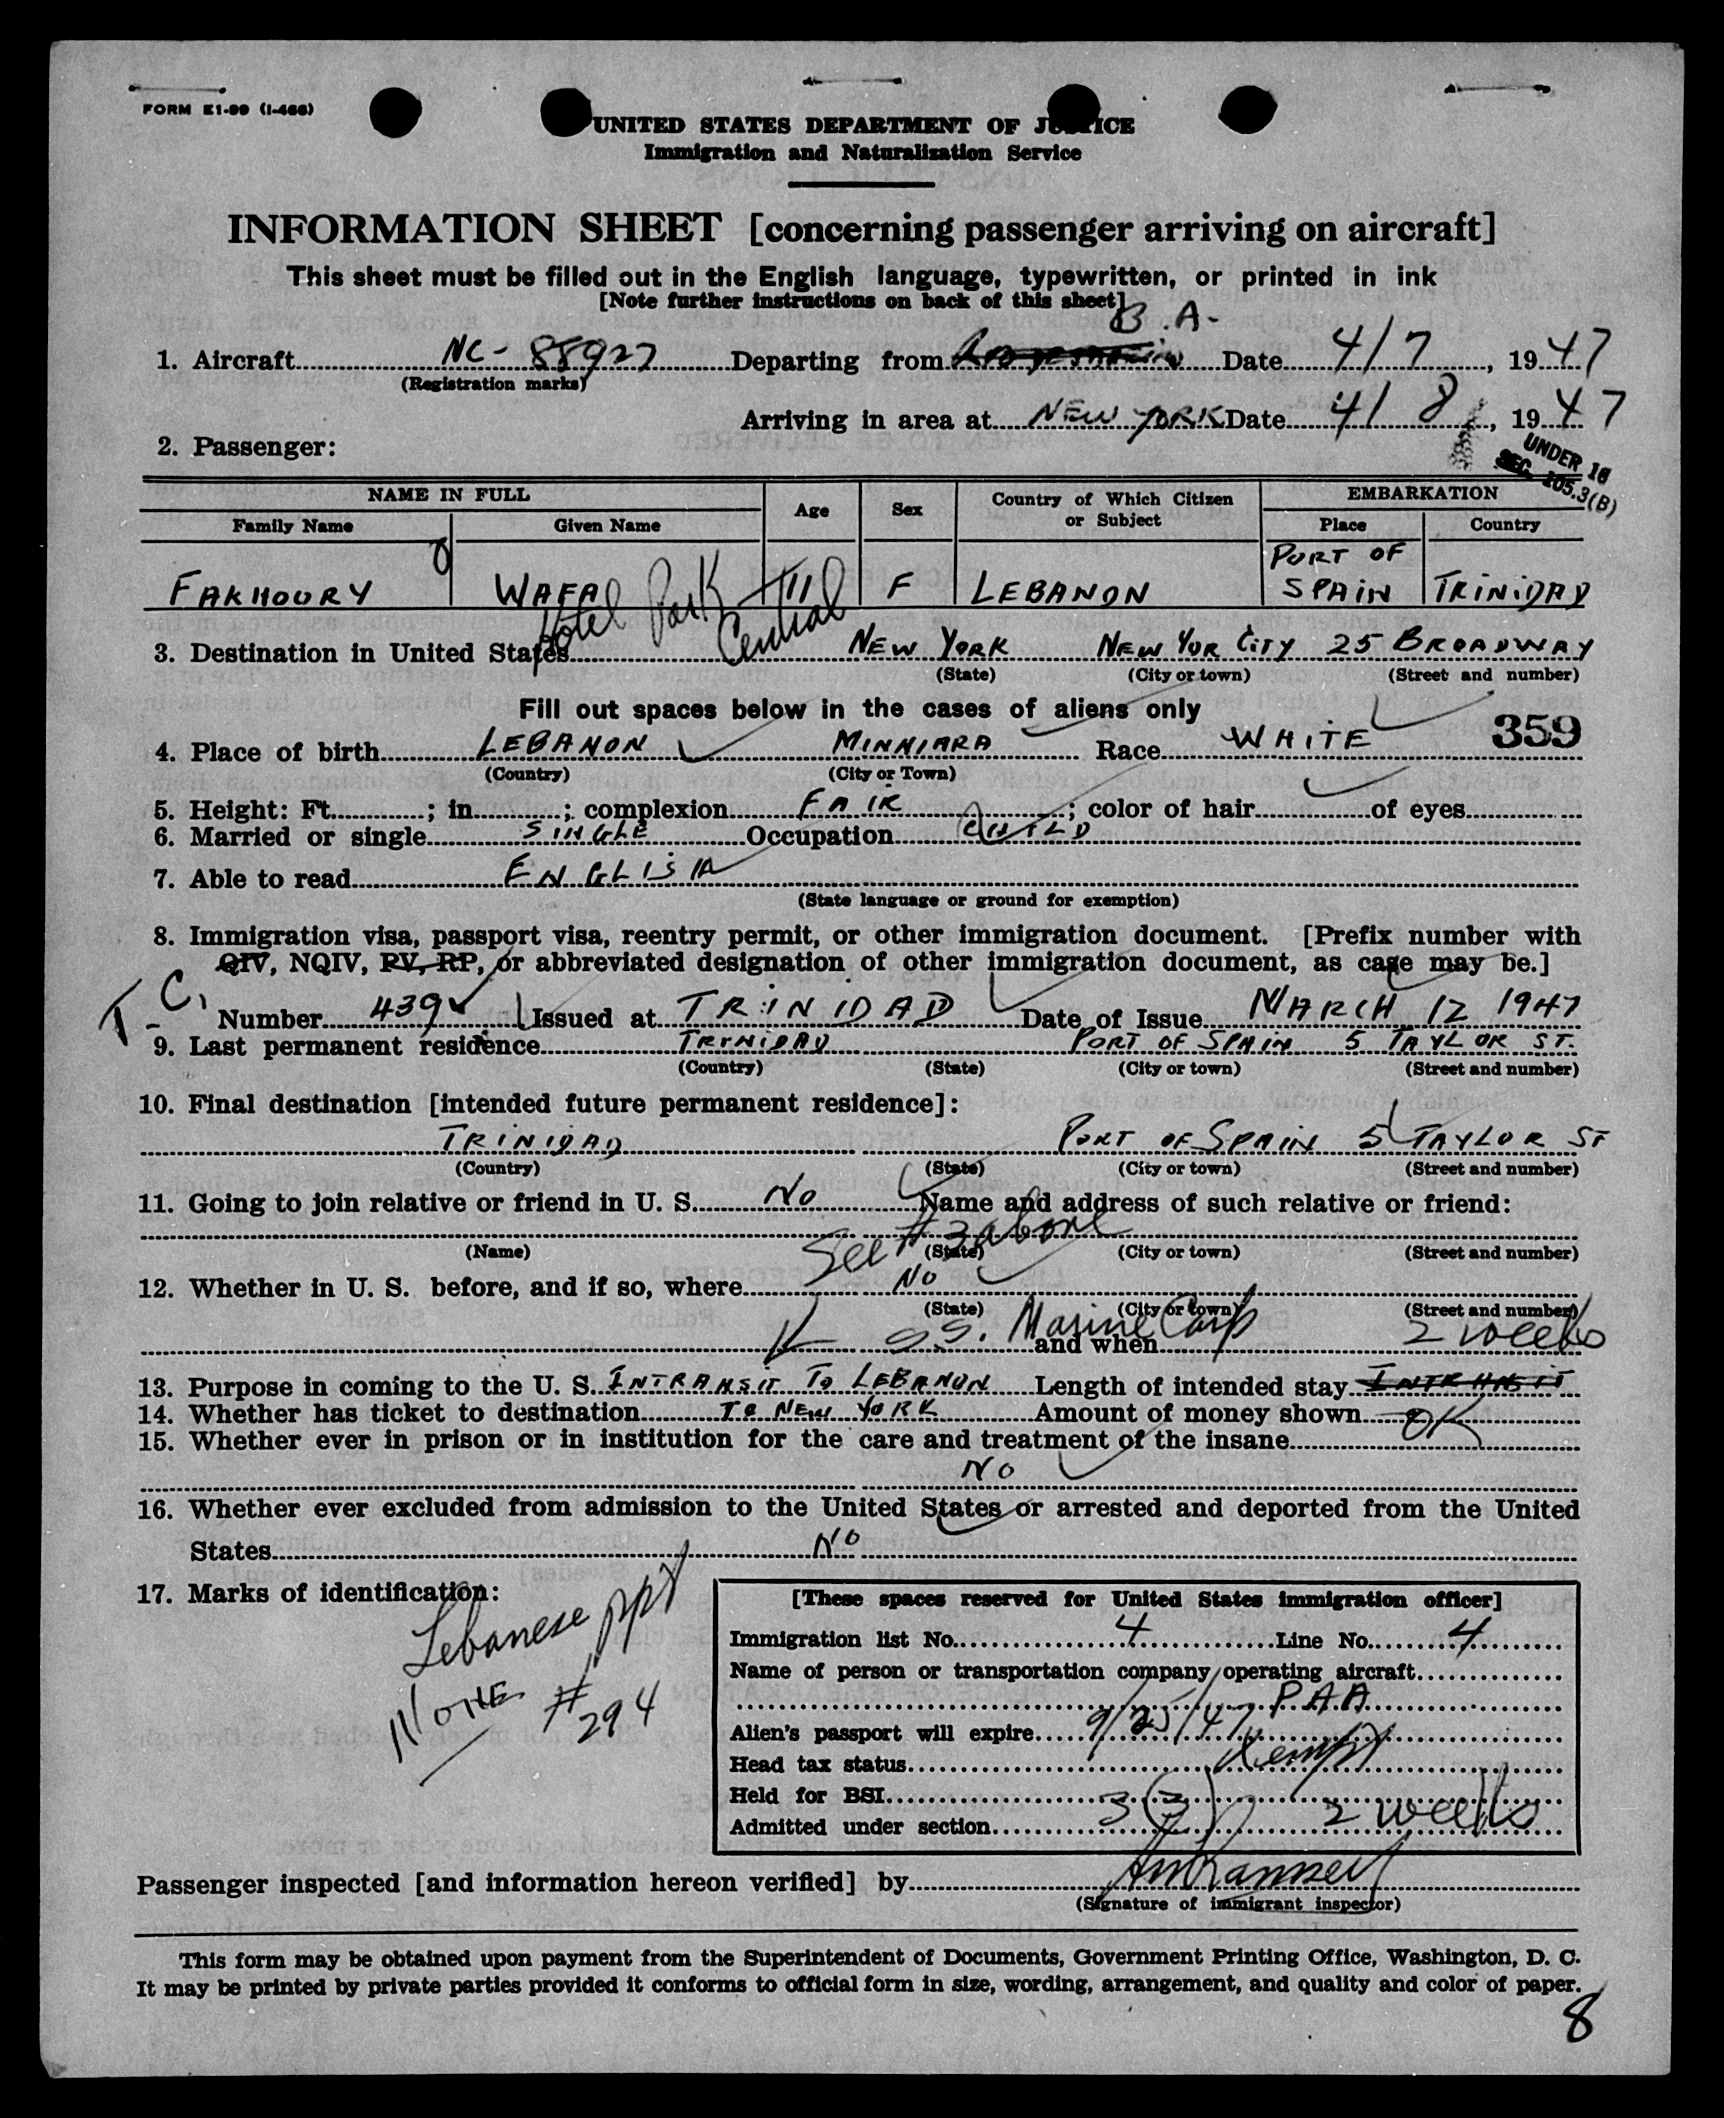 FORM E1-99 (I-466)
UNITED STATES DEPARTMENT OF JUSTICE
Immigration and Naturalization Service
INFORMATION SHEET [concerning passenger arriving on aircraft]
This sheet must be filled out in the English language, typewritten, or printed in ink
[Note further instructions on back of this sheet]
B.A.
1. Aircraft NC-88927 Departing from Date 4/7, 1947
(Registration marks)
Arriving in area at NEW YORK Date 4/8, 1947
2. Passenger:
UNDER 16
SEC. 105.3(B)
NAME IN FULL Age Sex Country of Which Citizen or Subject EMBARKATION
Family Name Given Name Place Country
FAKHOURY WAFA 11 F LEBANON PORT OF SPAIN TRINIDAD
Hotel Park Central
3. Destination in United States NEW YORK NEW YOR CITY 25 BROADWAY
(State) (City or town) (Street and number)
Fill out spaces below in the cases of aliens only
359
4. Place of birth LEBANON MINNIARA Race WHITE
(Country) (City or Town)
5. Height: Ft. ; in. ; complexion FAIR ; color of hair of eyes
6. Married or single SINGLE Occupation CHILD
7. Able to read ENGLISH
(State language or ground for exemption)
8. Immigration visa, passport visa, reentry permit, or other immigration document. [Prefix number with
QIV, NQIV, PV, RP, or abbreviated designation of other immigration document, as case may be.]
T.C. Number 439 Issued at TRINIDAD Date of Issue MARCH 12 1947
9. Last permanent residence TRINIDAD PORT OF SPAIN 5 TAYLOR ST.
(Country) (State) (City or town) (Street and number)
10. Final destination [intended future permanent residence]:
TRINIDAD PORT OF SPAIN 5 TAYLOR ST
(Country) (State) (City or town) (Street and number)
11. Going to join relative or friend in U. S. NO Name and address of such relative or friend:
See # 3 above
(Name) (State) (City or town) (Street and number)
12. Whether in U. S. before, and if so, where NO
(State) (City or town) (Street and number)
S.S. Marine Carp and when 2 weeks
13. Purpose in coming to the U. S. INTRANSIT TO LEBANON Length of intended stay INTRANSIT
14. Whether has ticket to destination TO NEW YORK Amount of money shown OK
15. Whether ever in prison or in institution for the care and treatment of the insane
NO
16. Whether ever excluded from admission to the United States or arrested and deported from the United
States NO
17. Marks of identification:
Lebanese ppt
NONE # 294
[These spaces reserved for United States immigration officer]
Immigration list No. 4 Line No. 4
Name of person or transportation company operating aircraft
PAA
Alien's passport will expire 9/25/47
Head tax status Exempt
Held for BSI
Admitted under section 3(3) 2 weeks
Passenger inspected [and information hereon verified] by
(Signature of immigrant inspector)
This form may be obtained upon payment from the Superintendent of Documents, Government Printing Office, Washington, D. C.
It may be printed by private parties provided it conforms to official form in size, wording, arrangement, and quality and color of paper.
8